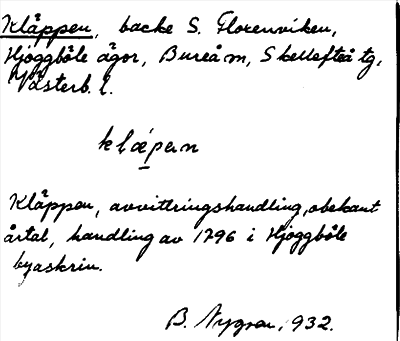 Kläppen, backe S. Florenviken,
Hjoggböle ägor, Bureå m, Skellefteå tg,
Västerb. l.
klǽpen
Kläppen, avvittringshandling, obekant
årtal, handling av 1796 i Hjoggböle
byaskrin.
B. Nygren, 1932.